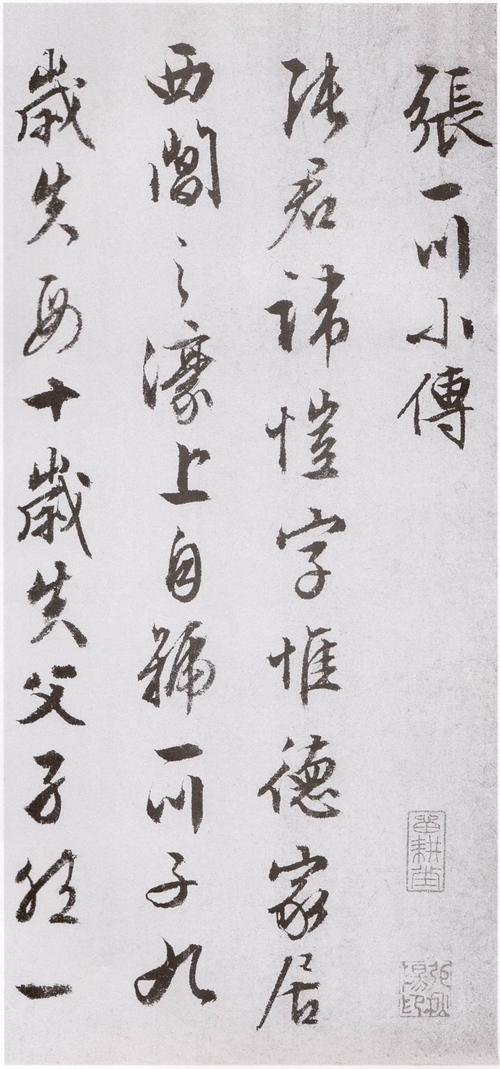 張一川小傳
張君諱愷字惟德家居
西閶之濠上自號一川子九
歲失母十歲失父孑然一
留耕堂